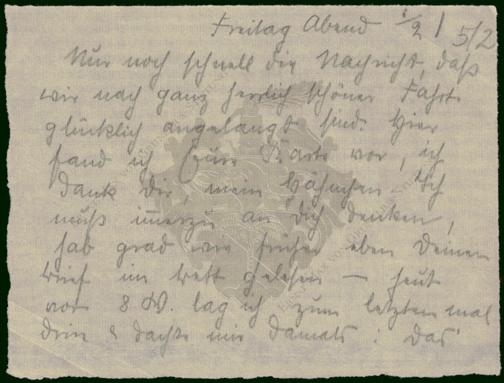 Freitag Abend 1/2 5/2
Nur noch schnell die Nachricht, daß
wir nach ganz herrlich schöner Fahrt
glücklich angelangt sind. Hier
fand ich Eure Karte vor, ich
dank Dir, mein Hähnchen. Ich
muß immerzu an Dich denken,
hab grad wie früher eben Deinen
Brief im Bett gelesen – heut
vor 8 W. lag ich zum letzten mal
drin & dachte mir damals: das